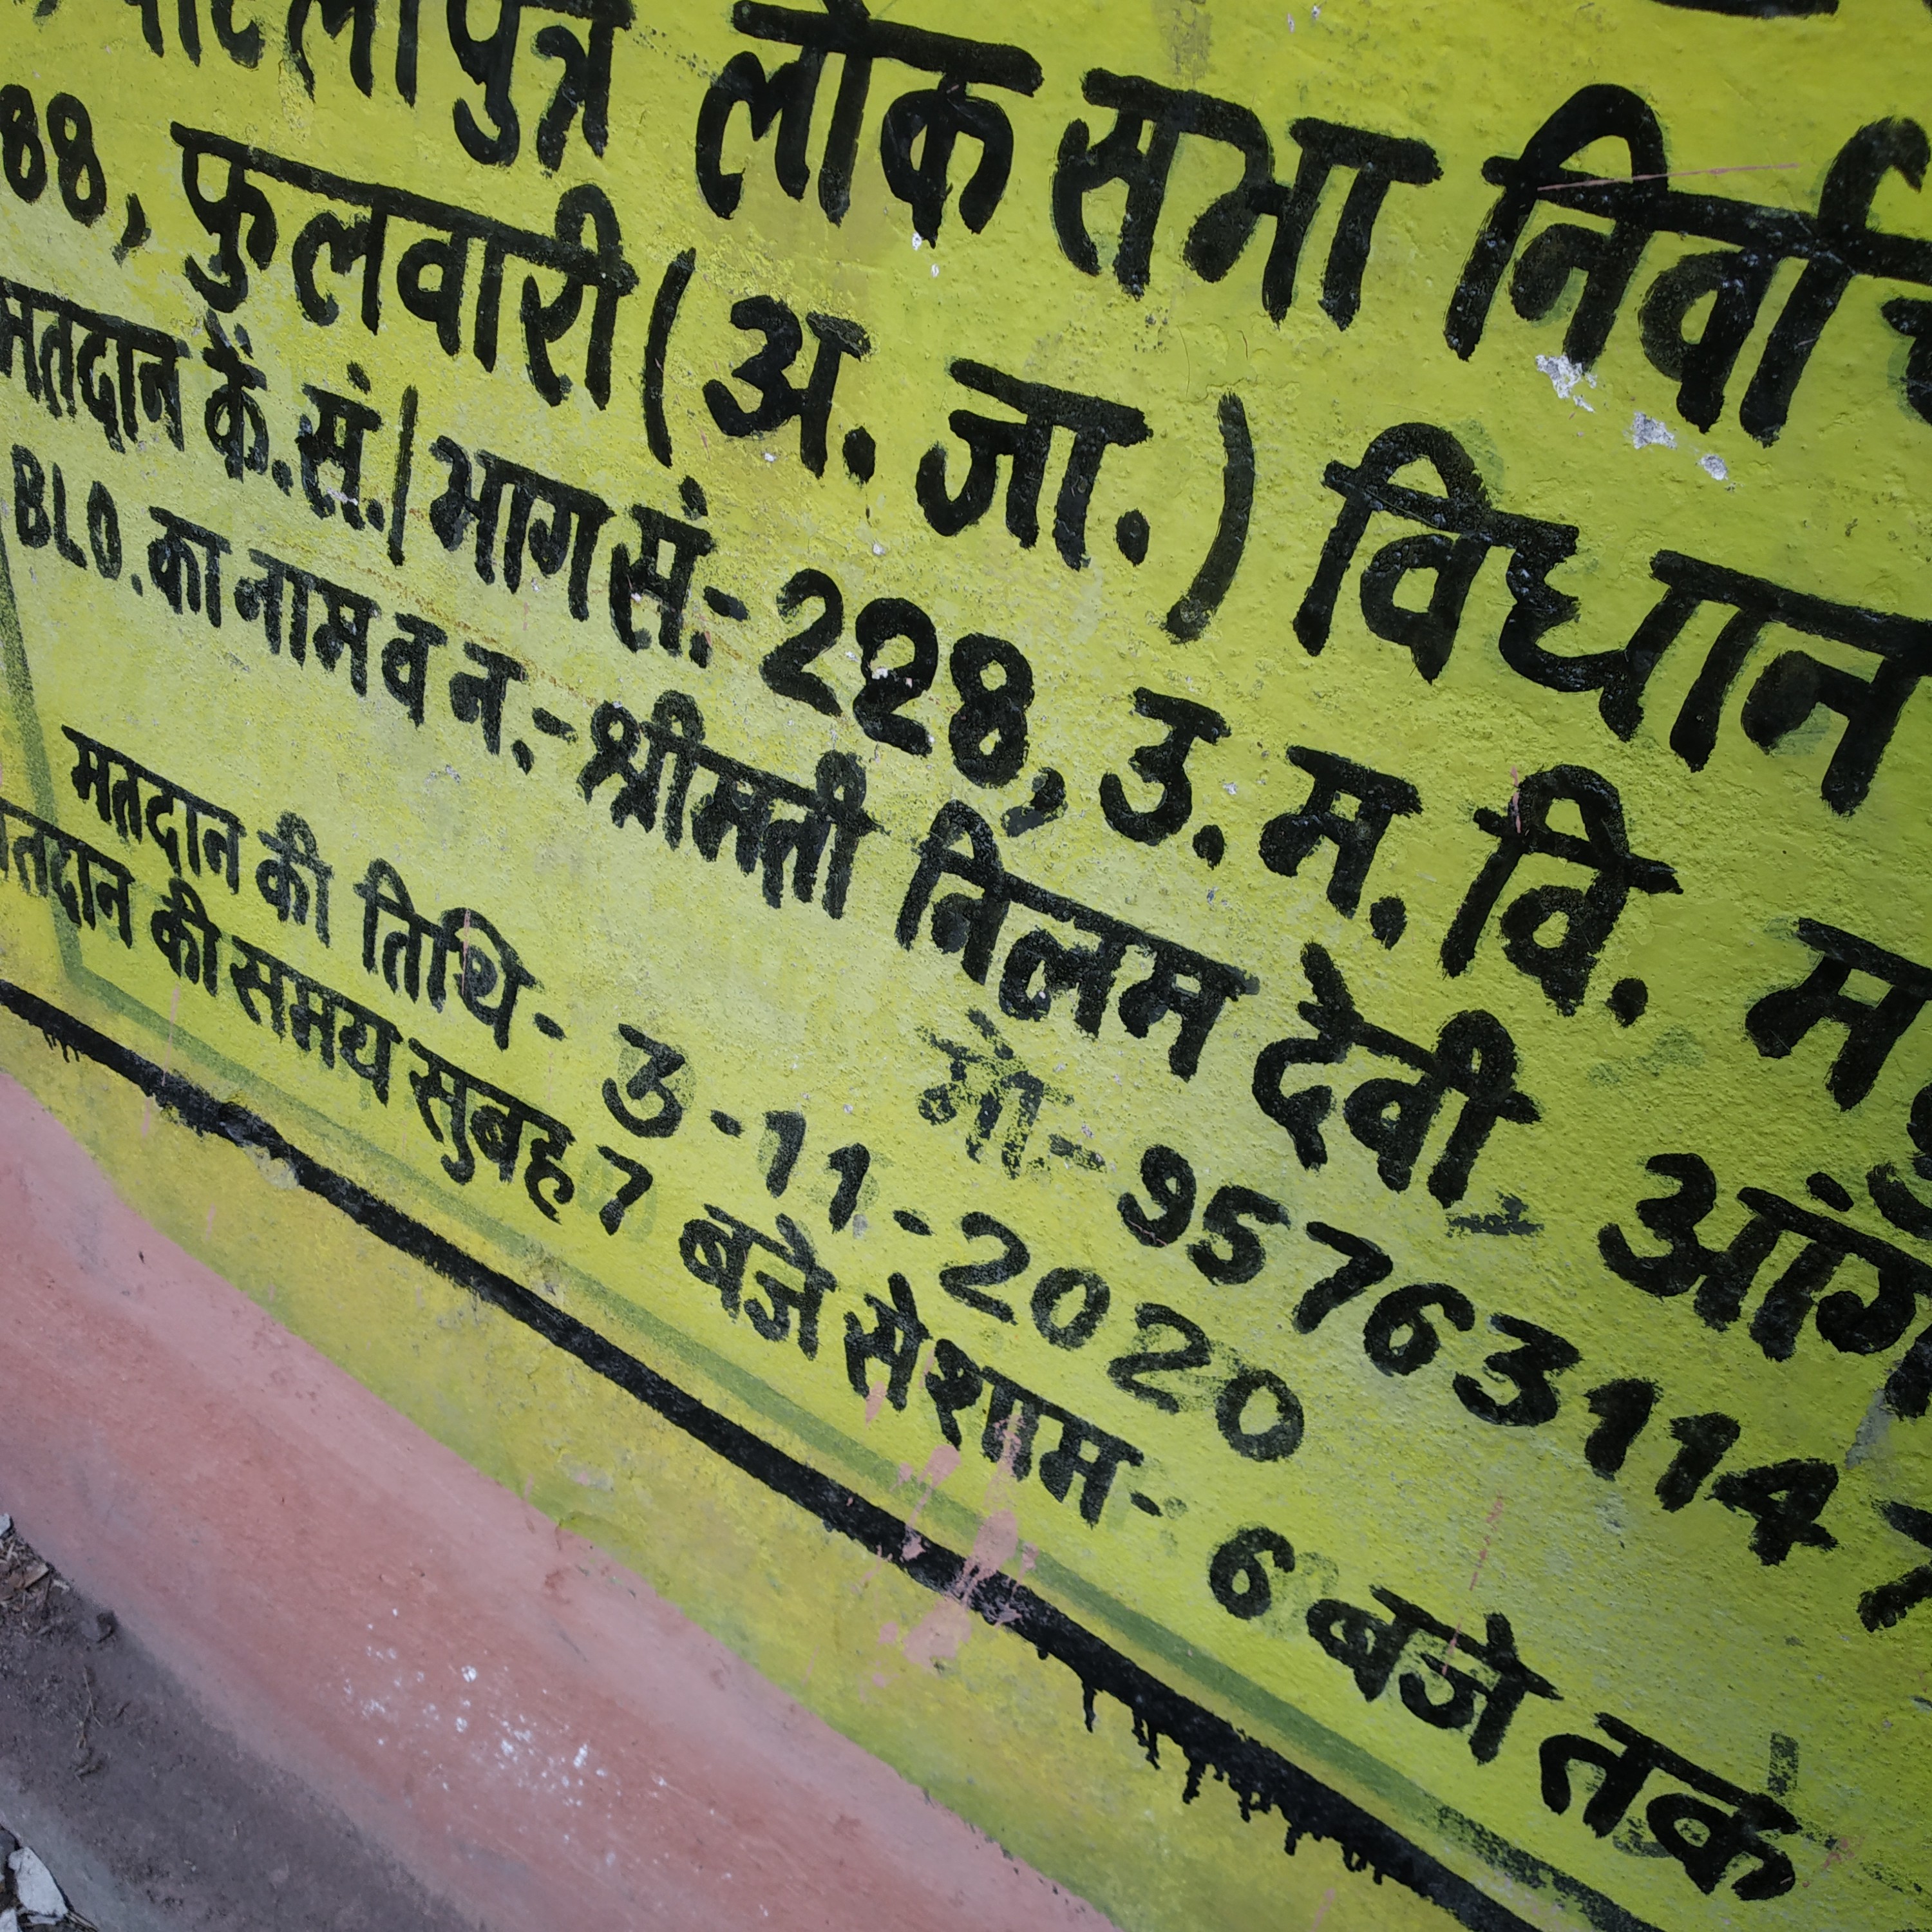 पाटलीपुत्र लोक सभा निर्वाच
188, फुलवारी (अ. जा.) विधान
मतदान कें. सं. / भाग सं:- 228, उ. म. वि.
BLO. का नाम व न.:- श्रीमती निलम देवी आंग
मो- 957631147
मतदान की तिथि- 3-11-2020
मतदान की समय सुबह 7 बजे से शाम- 6 बजे तक